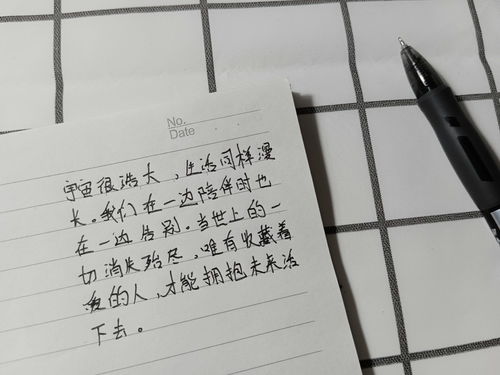 No.
Date
宇宙很浩大，生活同样漫
长。我们在一边陪伴时也
在一边告别。当世上的一
切消失殆尽，唯有收藏着
爱的人，才能拥抱未来活
下去。